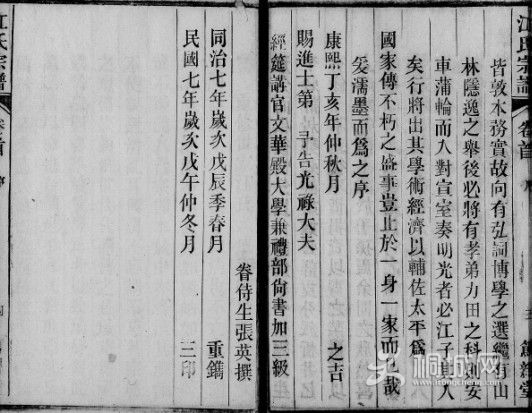 江氏宗譜
卷首
皆敦本務實故向有弘詞博學之選繼有山
林隱逸之舉後必將有孝弟力田之科則安
車蒲輪而入對宣室奏明光者必江子其人
矣行將出其學術經濟以輔佐太平爲
國家傳不朽之盛事豈止於一身一家而已哉
爰濡墨而爲之序
康熙丁亥年仲秋月 之吉
賜進士第 予告光祿大夫
經筵講官文華殿大學兼禮部尚書加三級
眷侍生張英撰
同治七年歲次戊辰季春月 重鐫
民國七年歲次戊午仲冬月 三印
江氏宗譜
卷首
序
桐城网
itongcheng.com